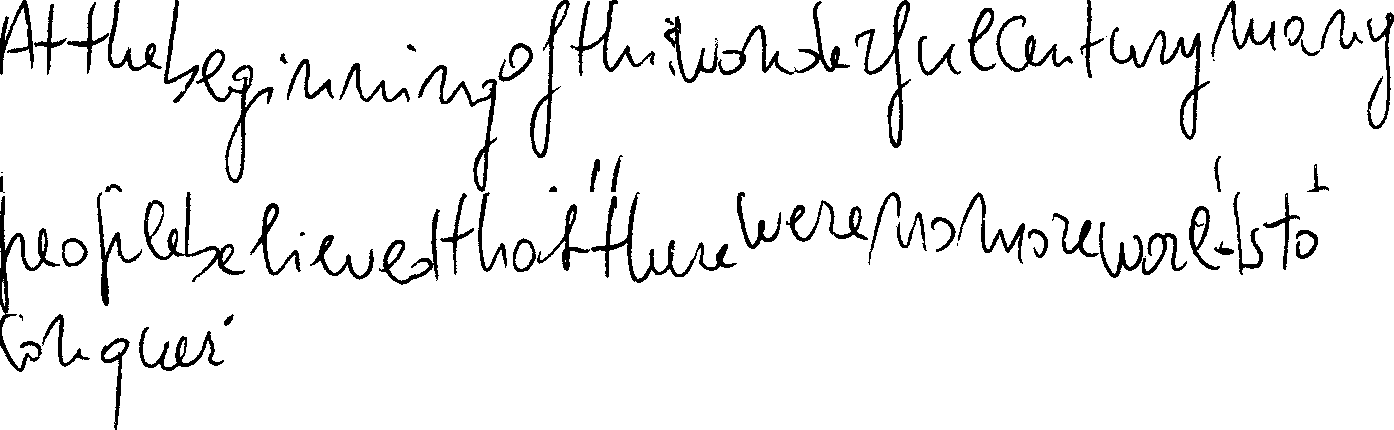 At the beginning of this wonderful century many
people believed that there were no more worlds to
conquer